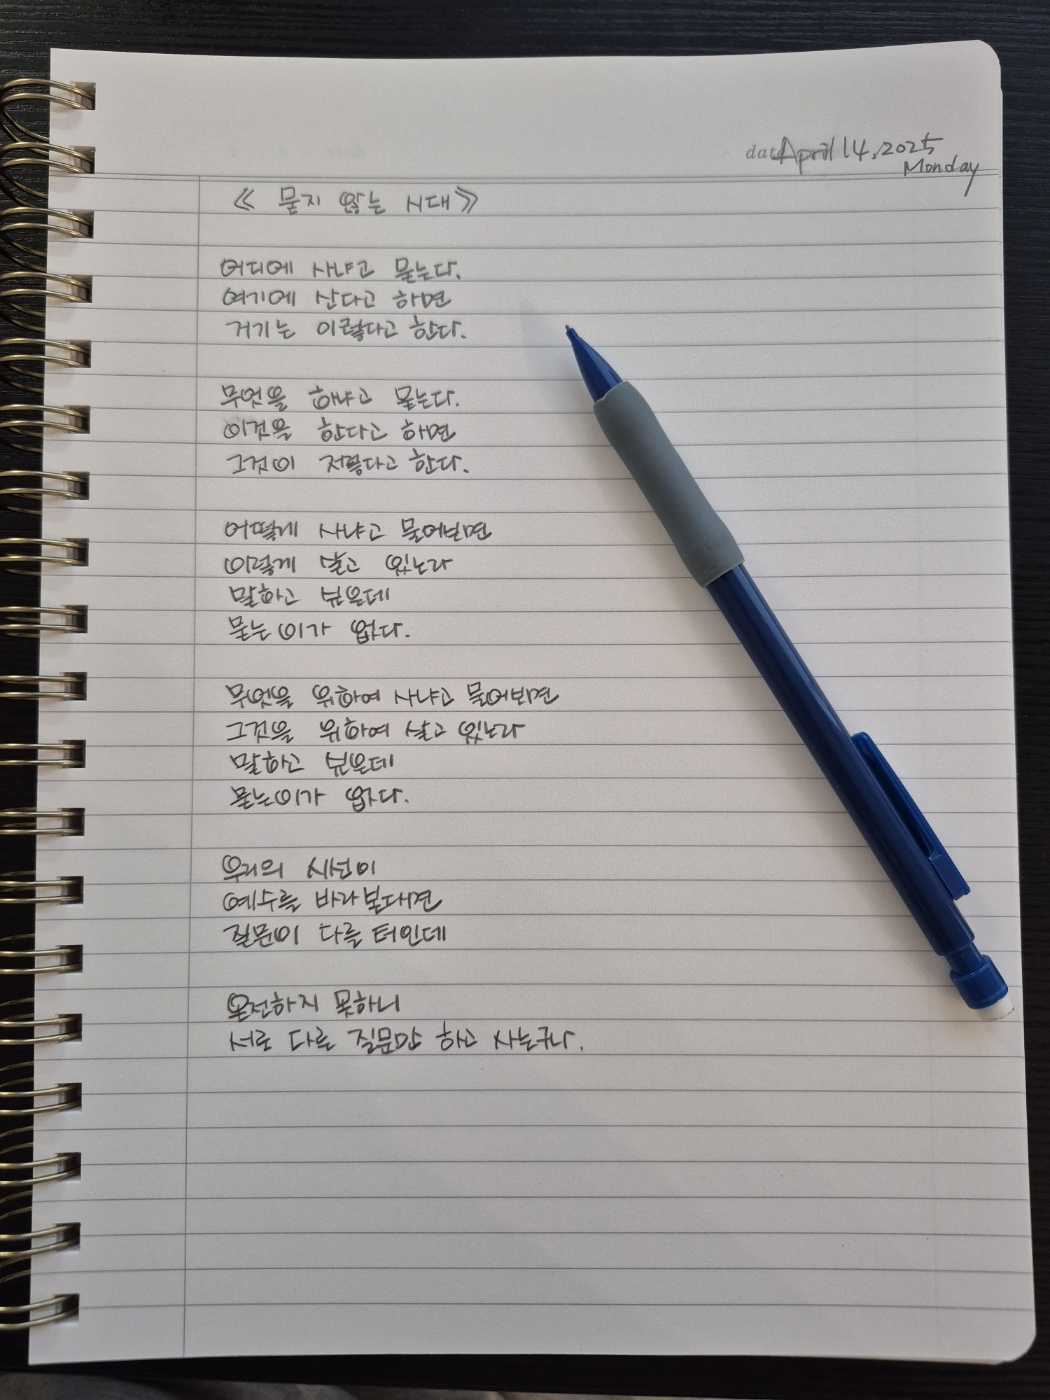 date April 14, 2025
Monday
《 묻지 않는 시대》
어디에 사냐고 묻는다.
여기에 산다고 하면
거기는 이렇다고 한다.
무엇을 하냐고 묻는다.
이것을 한다고 하면
그것이 저렇다고 한다.
어떻게 사냐고 물어보면
이렇게 살고 있노라
말하고 싶은데
묻는 이가 없다.
무엇을 위하여 사냐고 물어보면
그것을 위하여 살고 있노라
말하고 싶은데
묻는 이가 없다.
우리의 시선이
예수를 바라본다면
질문이 다를 터인데
온전하지 못하니
서로 다른 질문만 하고 사는구나.